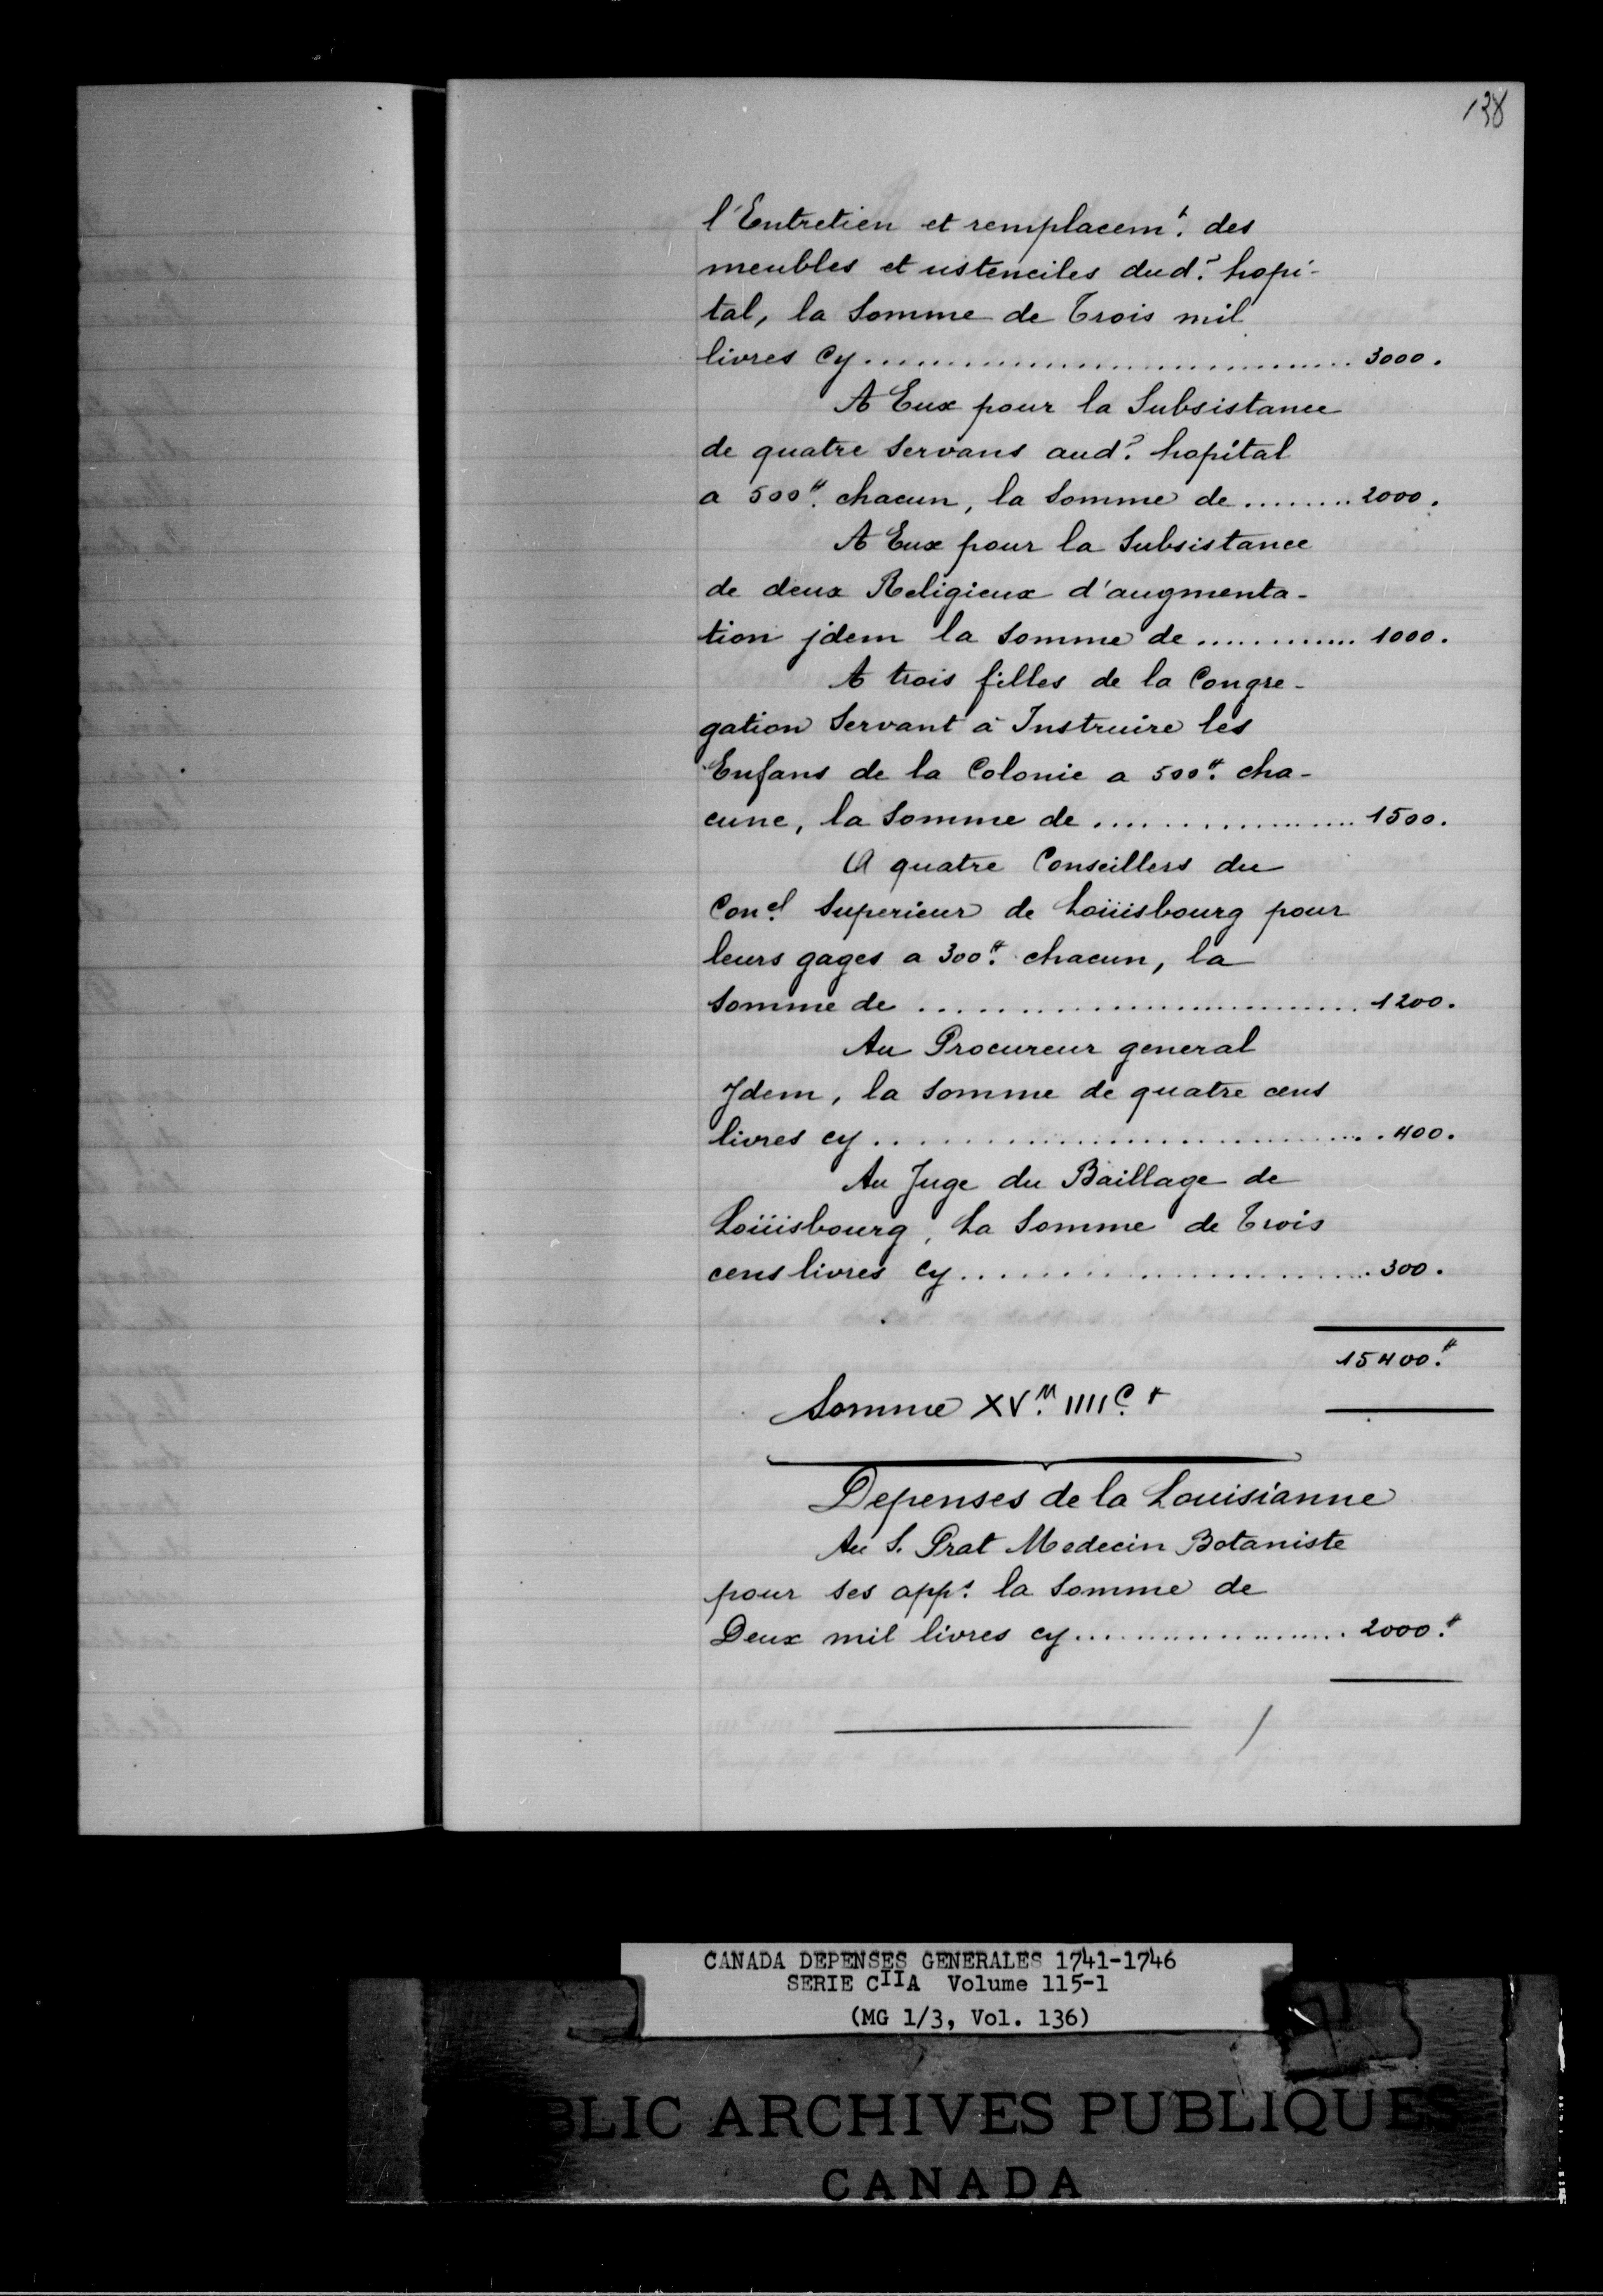 138
l'Entretien et remplacem.t des
meubles et ustenciles dud.? hopi-
tal, la Somme de Trois mil
livres Cy .............................. 3000.
A Eux pour la Subsistance
de quatre Servans aud.? hopital
a 500# chacun, la Somme de ......... 2000.
A Eux pour la Subsistance
de deux Religieux d'augmenta-
tion jdem la Somme de ............. 1000.
A trois filles de la Congre-
gation Servant à Instruire les
Enfans de la Colonie a 500# cha-
cune, la Somme de .................. 1500.
A quatre Conseillers du
Con.el Superieur de Loüisbourg pour
leurs gages a 300# chacun, la
Somme de ............................ 1200.
Au Procureur general
Jdem, la Somme de quatre cens
livres cy .............................. 400.
Au Juge du Baillage de
Loüisbourg, La Somme de Trois
cens livres Cy ......................... 300.
15400#
Somme XV.M IIII.C #
Depenses de la Louisianne
Au S. Prat Medecin Botaniste
pour ses app.s la Somme de
Deux mil livres cy ................... 2000#
CANADA DEPENSES GENERALES 1741-1746
SERIE CIIA Volume 115-1
(MG 1/3, Vol. 136)
BLIC ARCHIVES PUBLIQUES
CANADA